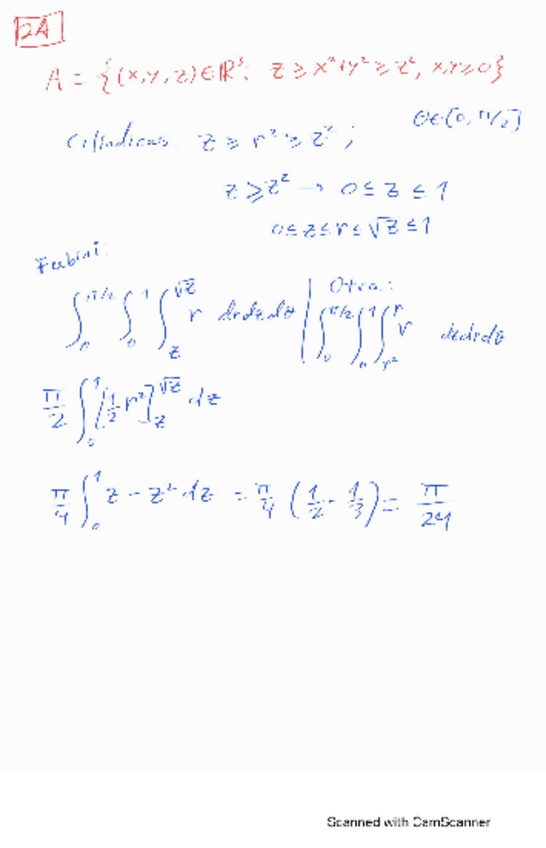 2A
A = {(x,y,z)∈ℝ³: z ≥ x²+y² ≥ z², x,y ≥ 0}
Cilíndricas: z ≥ r² ≥ z² ; θ∈[0, π/2]
z ≥ z² → 0 ≤ z ≤ 1
0 ≤ z ≤ r ≤ √z ≤ 1
Fubini:
∫₀^{π/2} ∫₀^1 ∫_z^{√z} r dr dz dθ | Otra: ∫₀^{π/2} ∫₀^1 ∫_{r²}^r r dz dr dθ
π/2 ∫₀^1 [1/2 r²]_z^{√z} dz
π/4 ∫₀^1 z - z² dz = π/4 (1/2 - 1/3) = π/24
Scanned with CamScanner